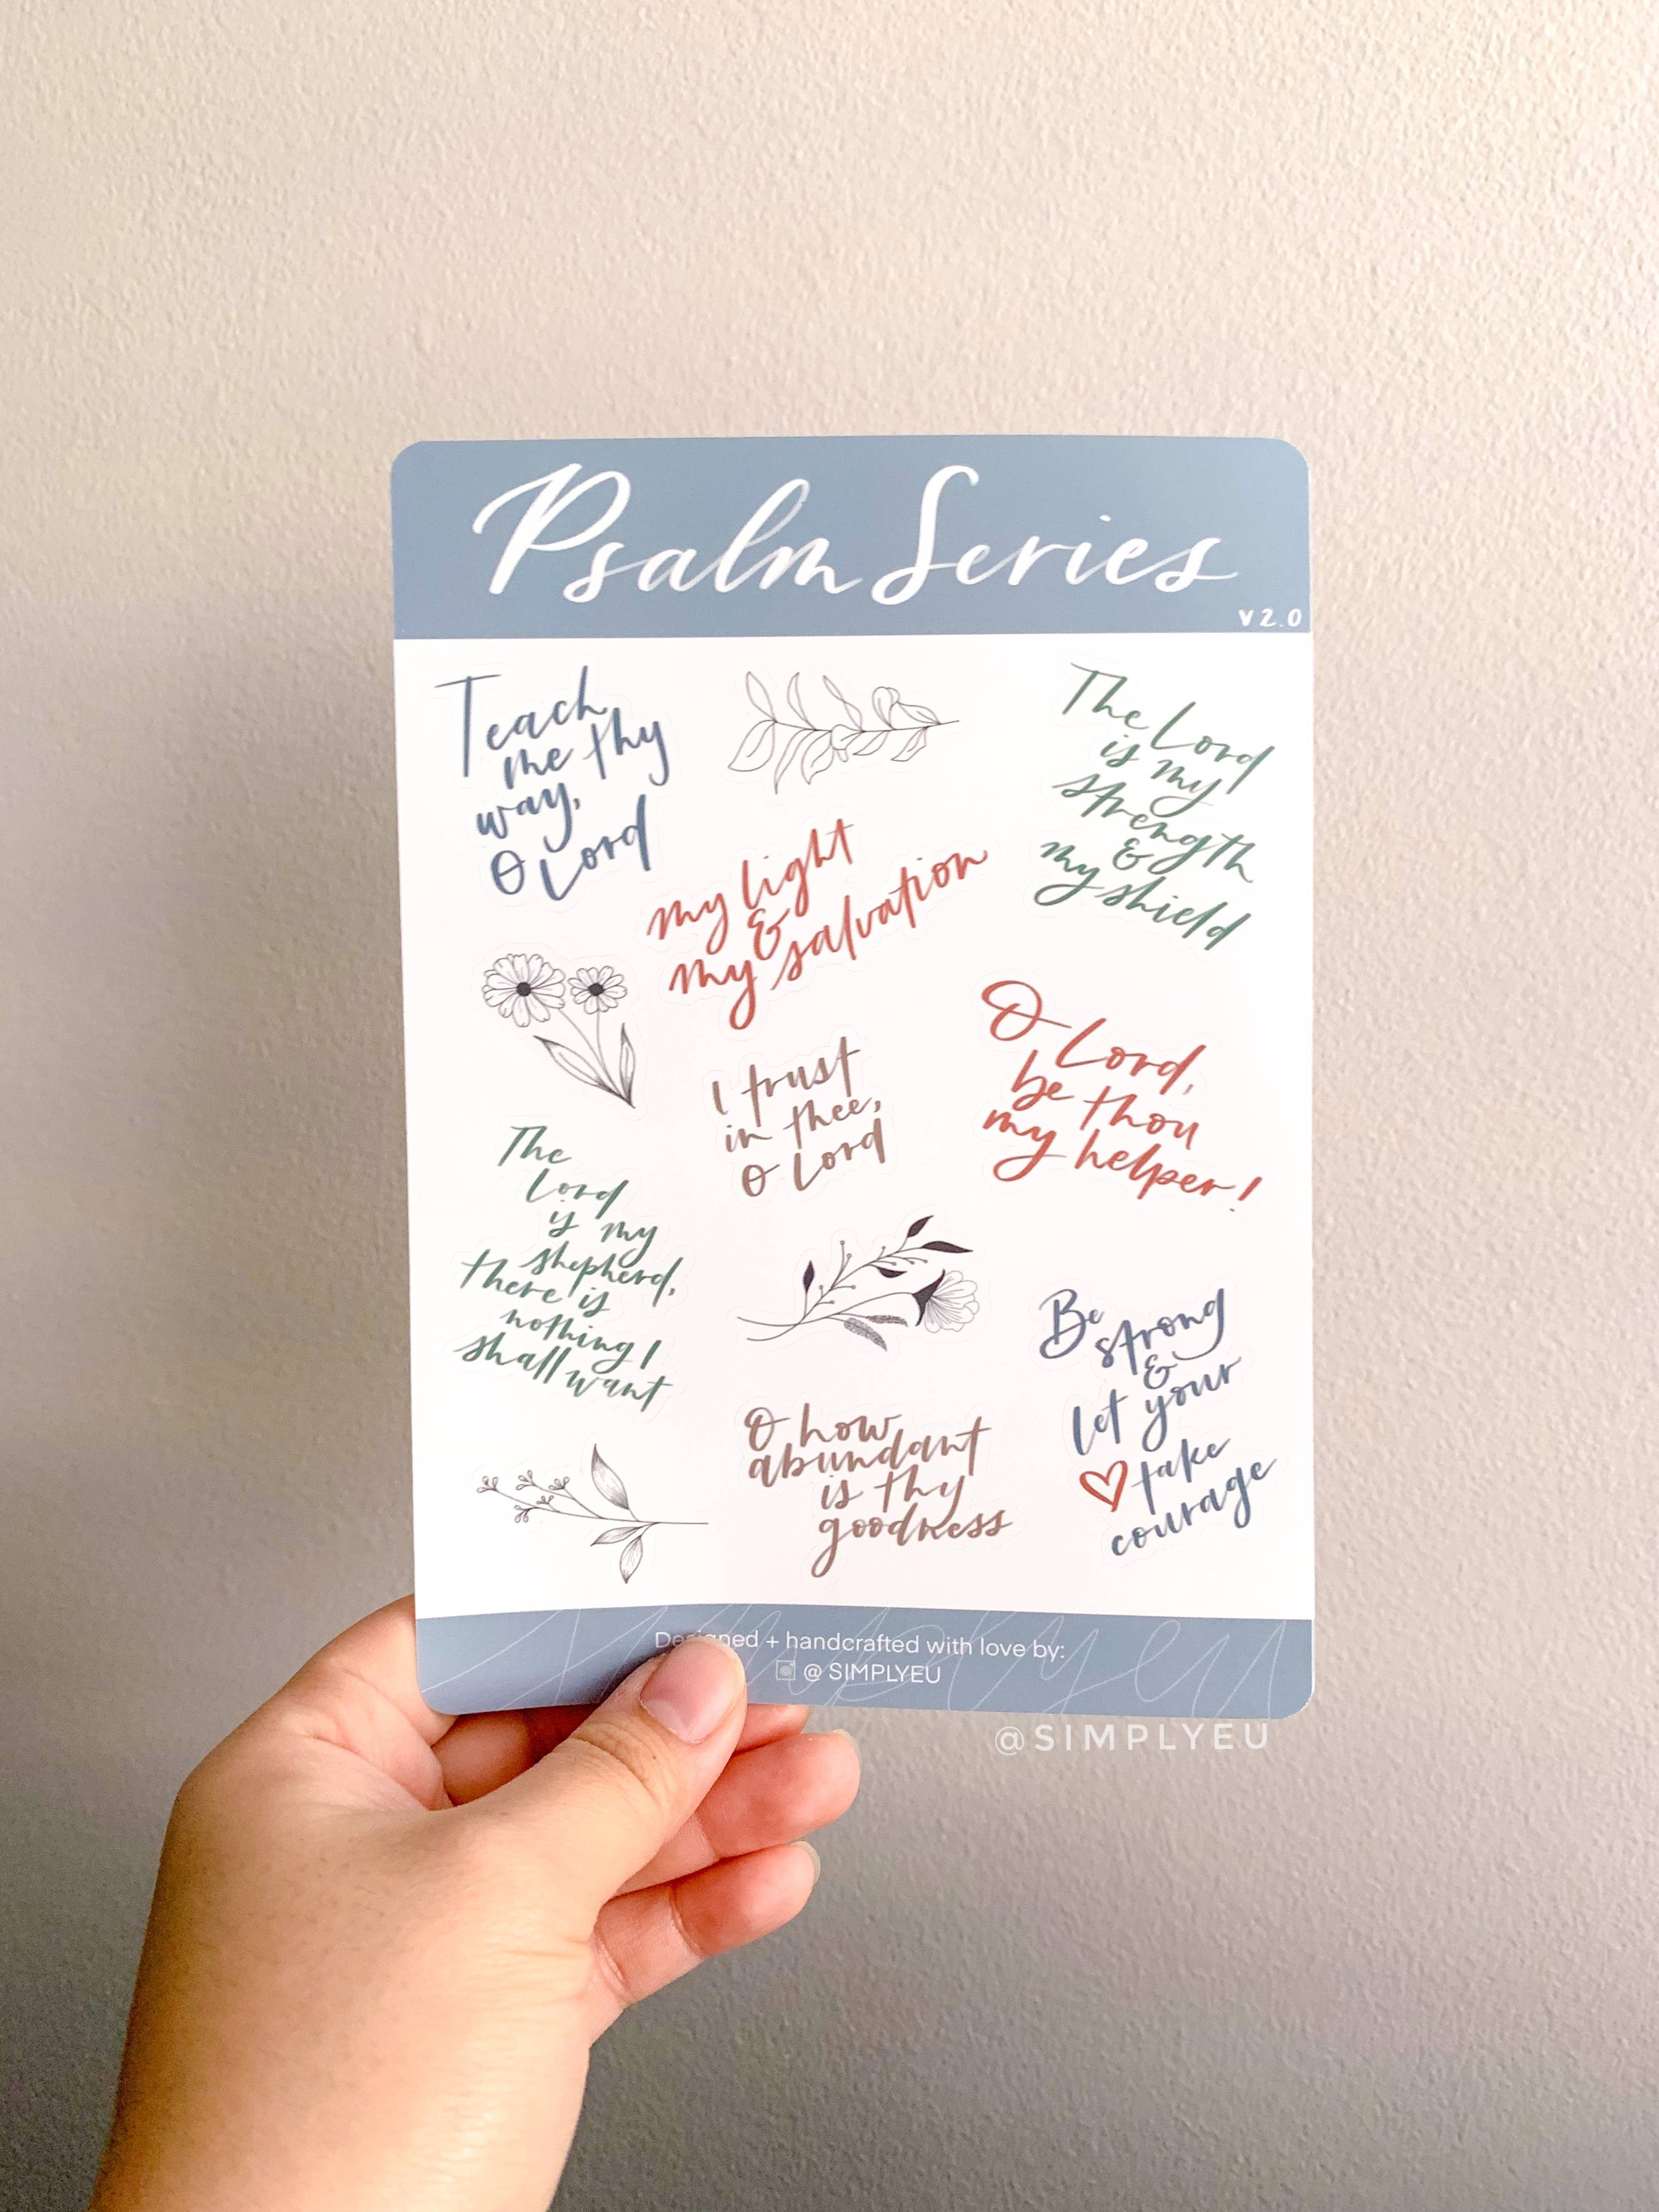 Psalm Series
v 2.0
Teach
me thy
way,
O Lord
The Lord
is my
strength
&
my shield
my light
&
my salvation
O Lord,
be thou
my helper!
I trust
in thee,
O Lord
The
Lord
is my
shepherd,
there is
nothing I
shall want
Be
strong
&
let your
♡ take
courage
O how
abundant
is thy
goodness
simplyeu
Designed + handcrafted with love by:
@ SIMPLYEU
@SIMPLYEU